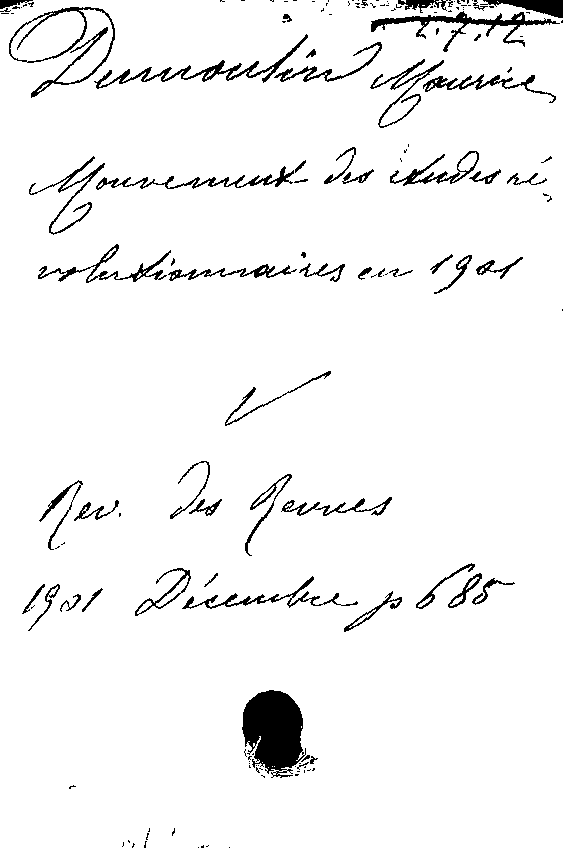 2.7.12
Dumoulin Maurice
Mouvement des études ré-
volutionnaires en 1901
Rev. des Revues
1901 Décembre p 685